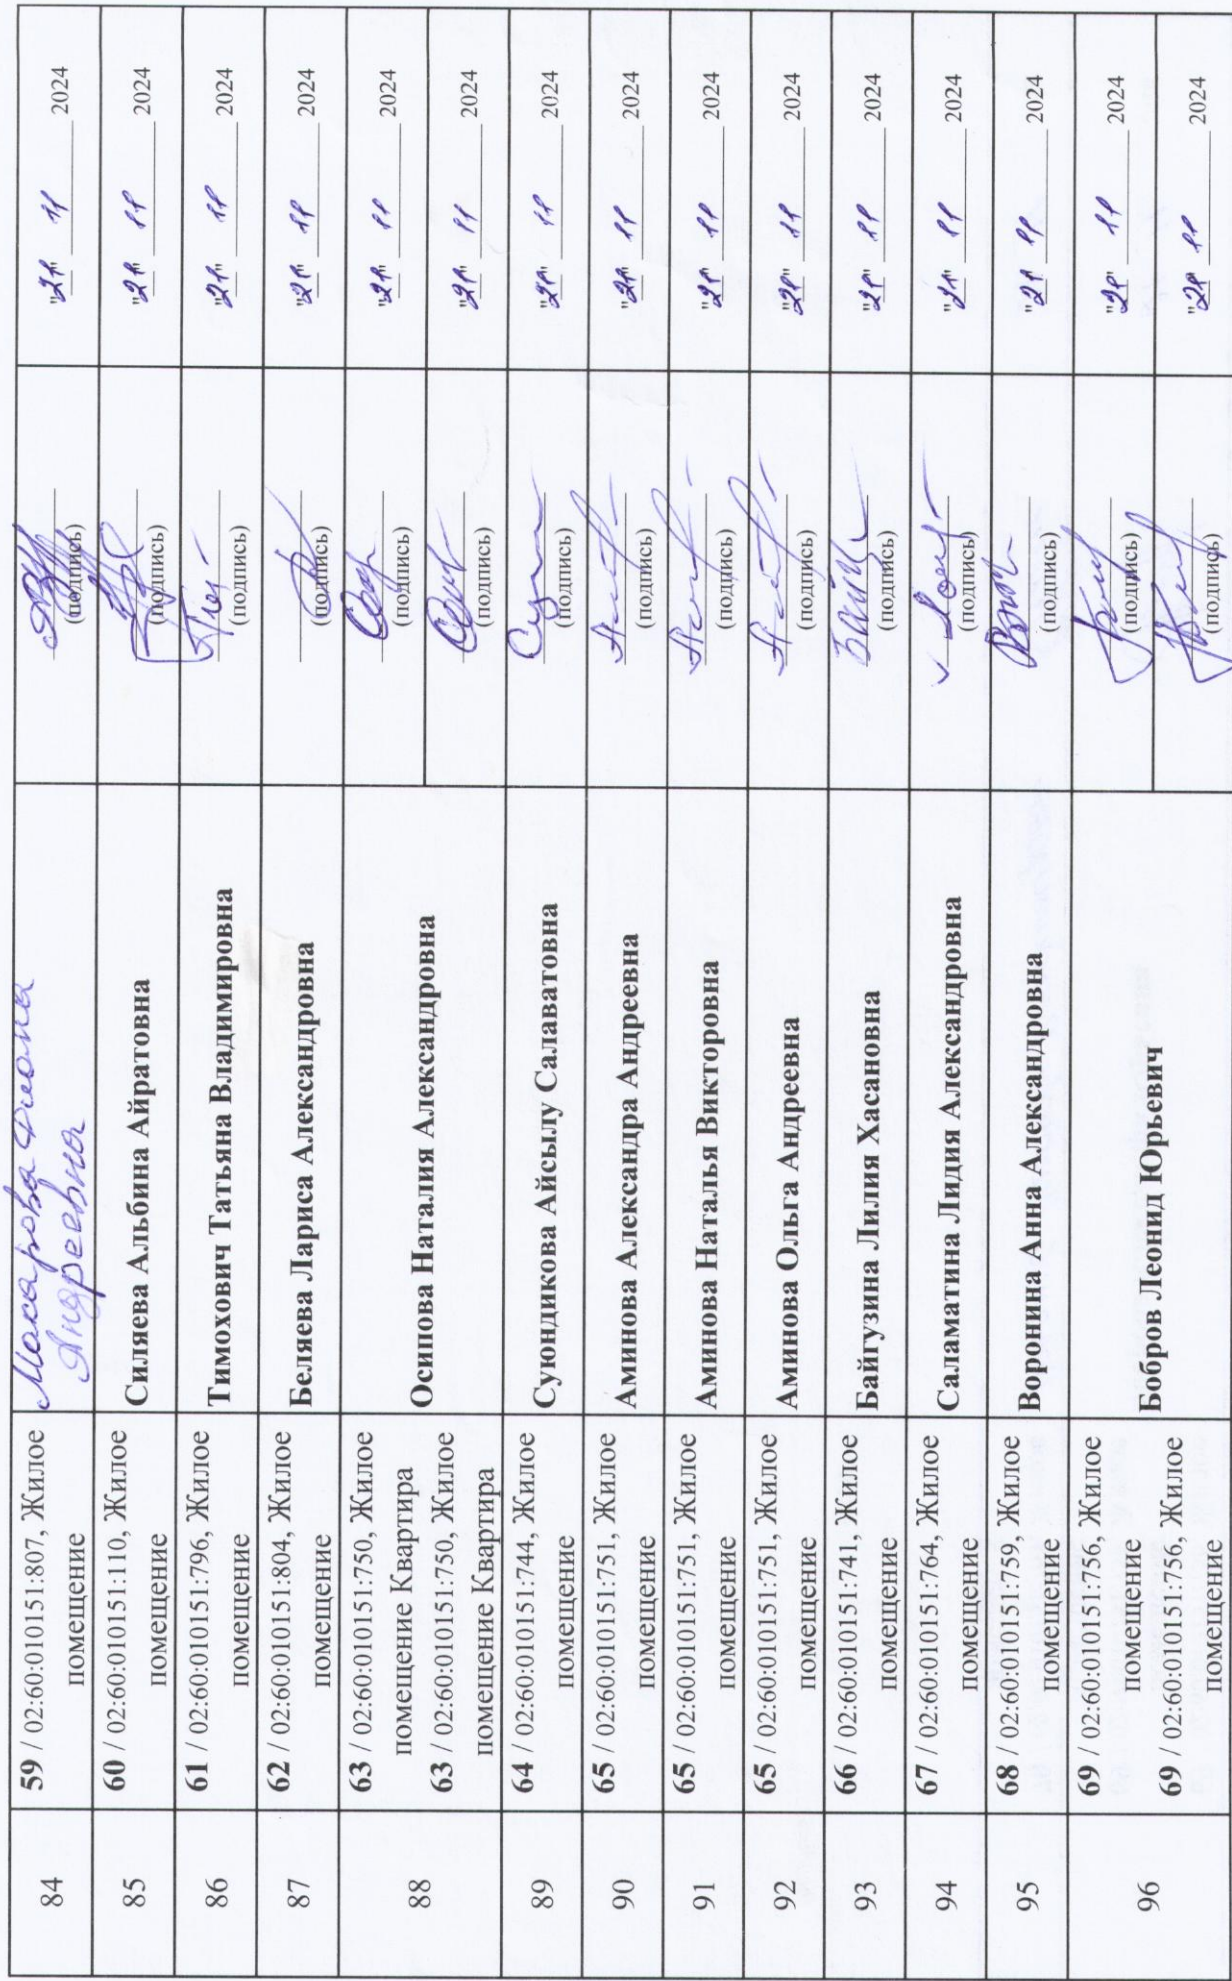 84
59 / 02:60:010151:807, Жилое
помещение
Андреевна
(подпись)
"21" 11 2024
85
60 / 02:60:010151:110, Жилое
помещение
Силяева Альбина Айратовна
(подпись)
"21" 11 2024
86
61 / 02:60:010151:796, Жилое
помещение
Тимохович Татьяна Владимировна
(подпись)
"21" 11 2024
87
62 / 02:60:010151:804, Жилое
помещение
Беляева Лариса Александровна
(подпись)
"21" 11 2024
88
63 / 02:60:010151:750, Жилое
помещение Квартира
63 / 02:60:010151:750, Жилое
помещение Квартира
Осипова Наталия Александровна
(подпись)
"21" 11 2024
(подпись)
"21" 11 2024
89
64 / 02:60:010151:744, Жилое
помещение
Суюндикова Айсылу Салаватовна
(подпись)
"21" 11 2024
90
65 / 02:60:010151:751, Жилое
помещение
Аминова Александра Андреевна
(подпись)
"21" 11 2024
91
65 / 02:60:010151:751, Жилое
помещение
Аминова Наталья Викторовна
(подпись)
"21" 11 2024
92
65 / 02:60:010151:751, Жилое
помещение
Аминова Ольга Андреевна
(подпись)
"21" 11 2024
93
66 / 02:60:010151:741, Жилое
помещение
Байгузина Лилия Хасановна
(подпись)
"21" 11 2024
94
67 / 02:60:010151:764, Жилое
помещение
Саламатина Лидия Александровна
(подпись)
"21" 11 2024
95
68 / 02:60:010151:759, Жилое
помещение
Воронина Анна Александровна
(подпись)
"21" 11 2024
96
69 / 02:60:010151:756, Жилое
помещение
69 / 02:60:010151:756, Жилое
помещение
Бобров Леонид Юрьевич
(подпись)
"21" 11 2024
(подпись)
"21" 11 2024